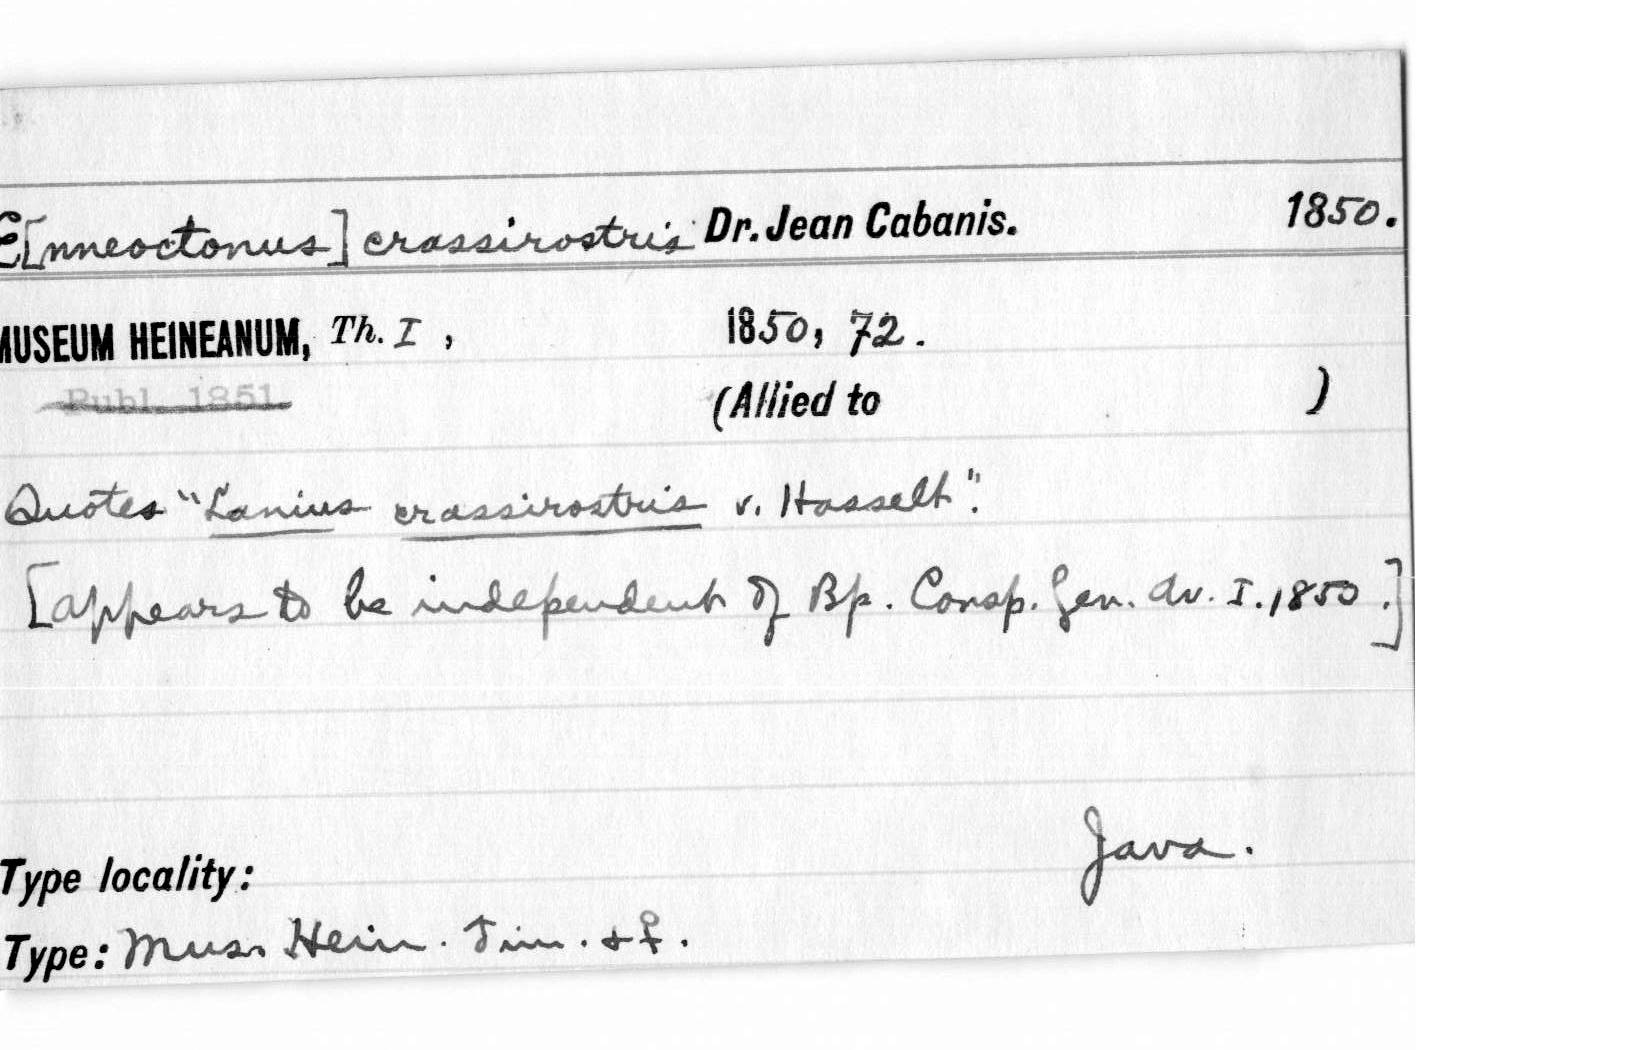 E[nneoctonus] crassirostris Dr. Jean Cabanis. 1850.
MUSEUM HEINEANUM, Th. I , 1850, 72.
Publ. 1851
(Allied to )
Quotes "Lanius crassirostris v. Hasselt".
[appears to be independent of Bp. Consp. Gen. Av. I. 1850.]
Java.
Type locality:
Type: Mus. Hein. Juv. + ♀.